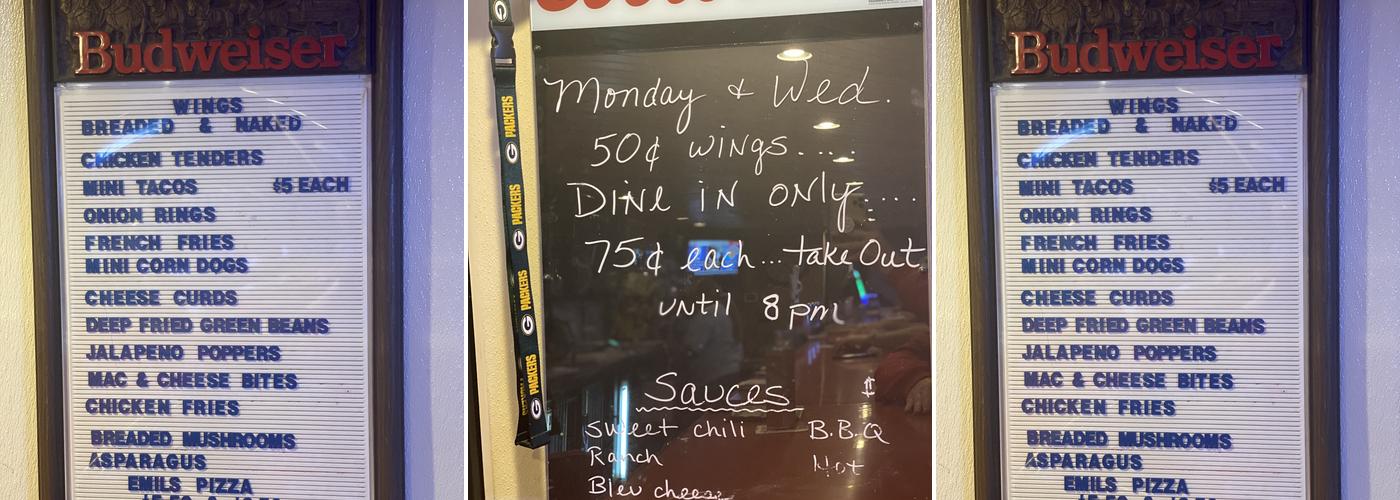 Budweiser
WINGS
BREADED & NAKED
CHICKEN TENDERS
MINI TACOS $5 EACH
ONION RINGS
FRENCH FRIES
MINI CORN DOGS
CHEESE CURDS
DEEP FRIED GREEN BEANS
JALAPENO POPPERS
MAC & CHEESE BITES
CHICKEN FRIES
BREADED MUSHROOMS
ASPARAGUS
EMILS PIZZA
PACKERS
PACKERS
PACKERS
PACKERS
Monday & Wed.
50¢ wings....
Dine in only....
75¢ each...take Out
until 8pm
Sauces $
Sweet chili B.B.Q
Ranch Hot
Bleu cheese
Budweiser
WINGS
BREADED & NAKED
CHICKEN TENDERS
MINI TACOS $5 EACH
ONION RINGS
FRENCH FRIES
MINI CORN DOGS
CHEESE CURDS
DEEP FRIED GREEN BEANS
JALAPENO POPPERS
MAC & CHEESE BITES
CHICKEN FRIES
BREADED MUSHROOMS
ASPARAGUS
EMILS PIZZA